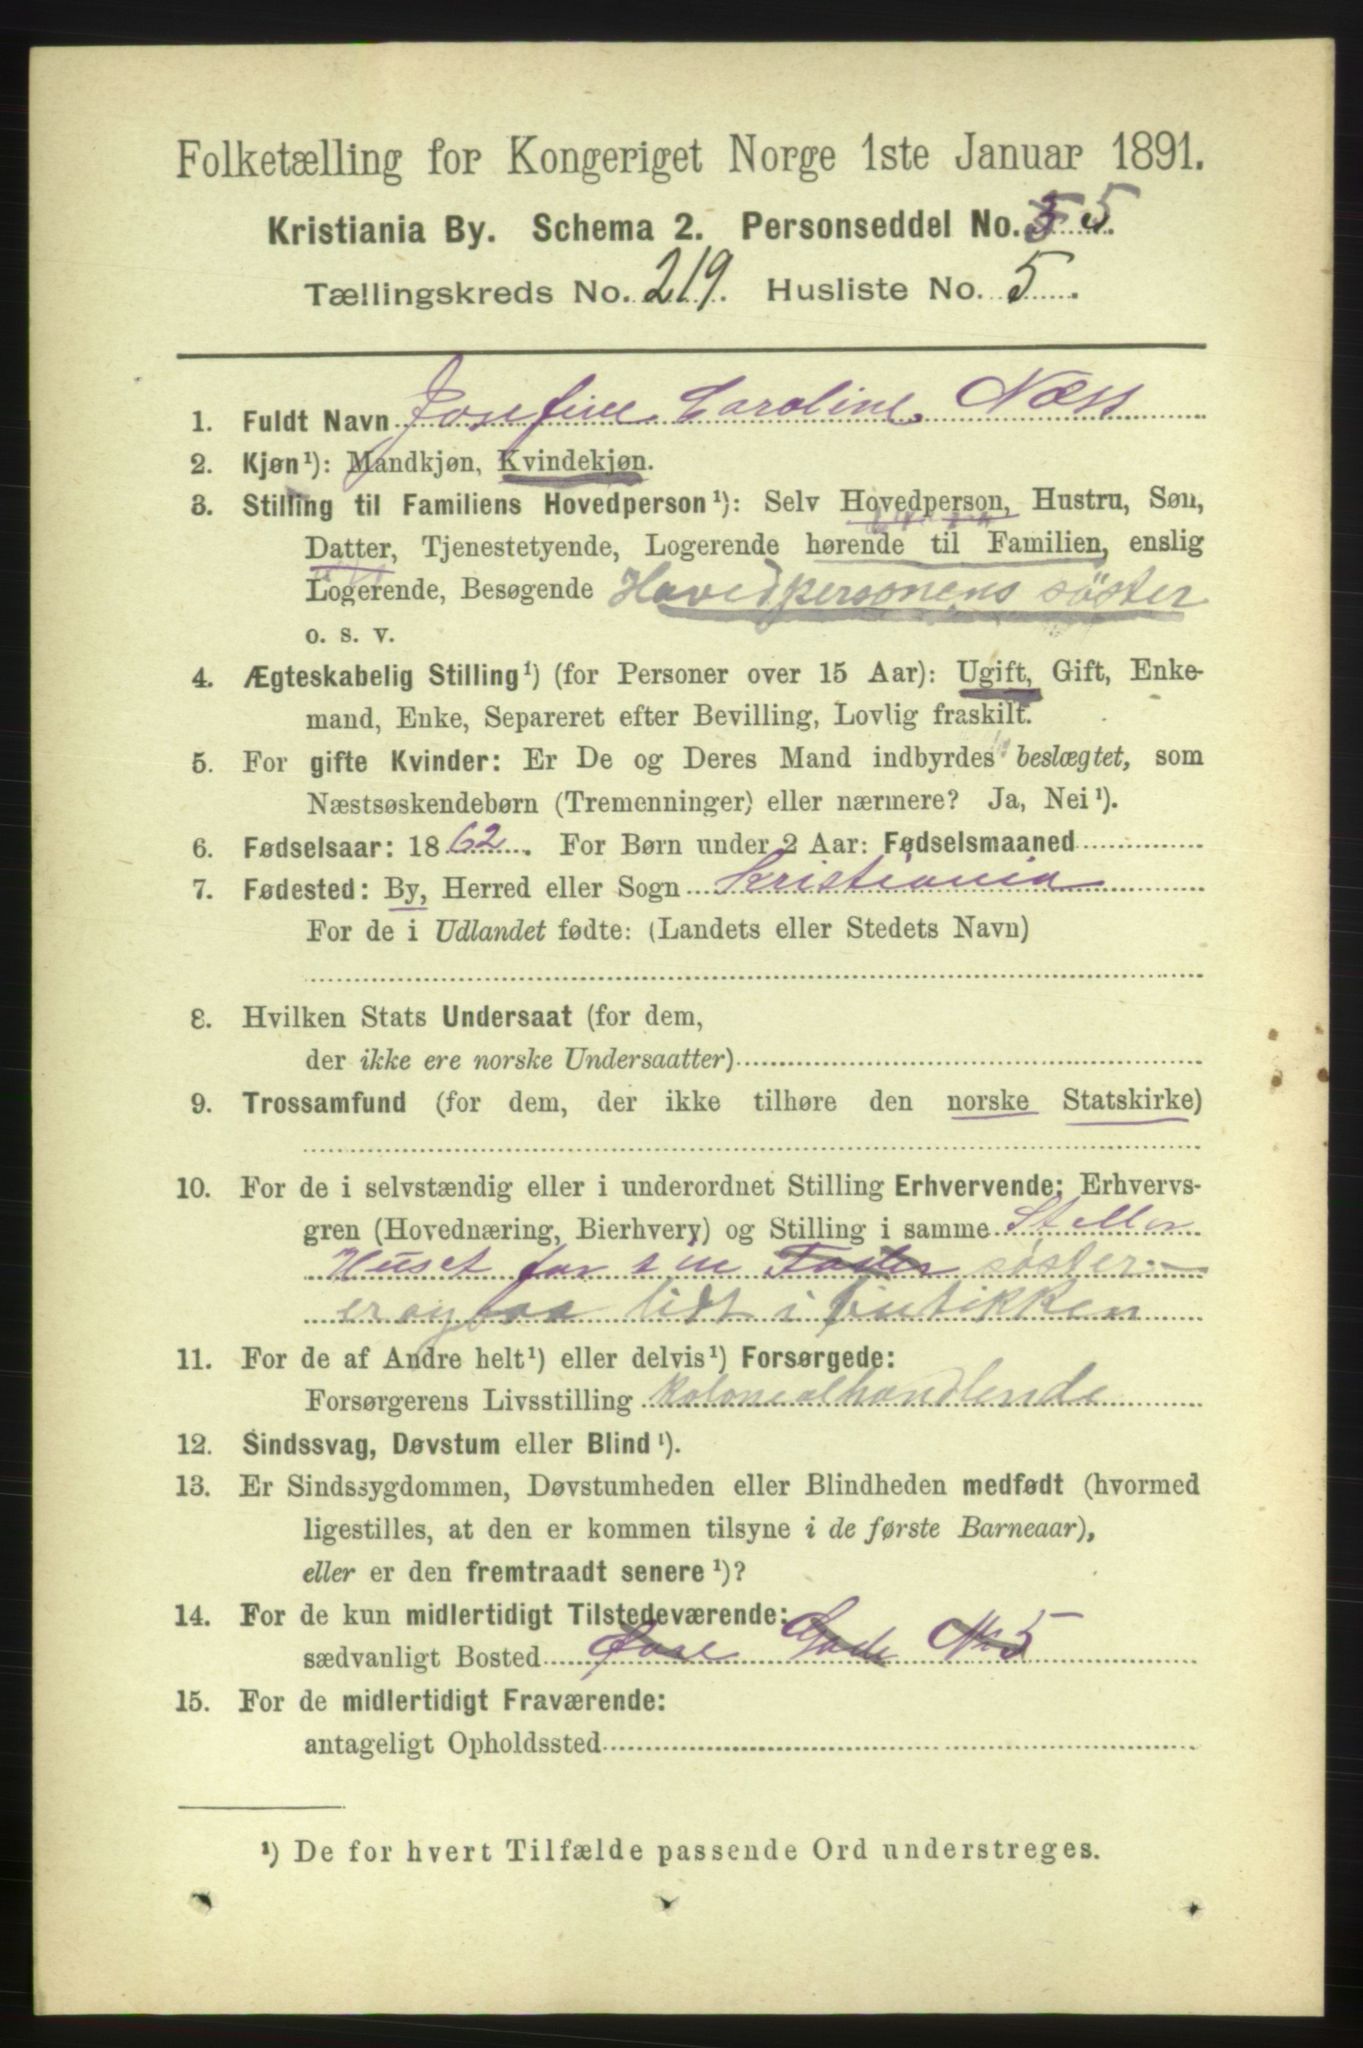 Folketælling for Kongeriget Norge 1ste Januar 1891.
Kristiania By. Schema 2. Personseddel No. 5
Tællingskreds No. 219. Husliste No. 5.
1. Fuldt Navn Josefine Caroline Næss
2. Kjøn¹): Mandkjøn, Kvindekjøn.
3. Stilling til Familiens Hovedperson¹): Selv Hovedperson, Hustru, Søn,
Datter, Tjenestetyende, Logerende hørende til Familien, enslig
Logerende, Besøgende Hovedpersonens söster
o. s. v.
4. Ægteskabelig Stilling¹) (for Personer over 15 Aar): Ugift, Gift, Enke-
mand, Enke, Separeret efter Bevilling, Lovlig fraskilt.
5. For gifte Kvinder: Er De og Deres Mand indbyrdes beslægtet, som
Næstsøskendebørn (Tremenninger) eller nærmere? Ja, Nei¹).
6. Fødselsaar: 1862. For Børn under 2 Aar: Fødselsmaaned
7. Fødested: By, Herred eller Sogn Kristiania
For de i Udlandet fødte: (Landets eller Stedets Navn)
8. Hvilken Stats Undersaat (for dem,
der ikke ere norske Undersaatter)
9. Trossamfund (for dem, der ikke tilhøre den norske Statskirke)
10. For de i selvstændig eller i underordnet Stilling Erhvervende: Erhvervs-
gren (Hovednæring, Bierhverv) og Stilling i samme Steller
Huset for sin Fader söster
er ogsaa lidt i butikken
11. For de af Andre helt¹) eller delvis¹) Forsørgede:
Forsørgerens Livsstilling Kolonialhandlende
12. Sindssvag, Døvstum eller Blind¹).
13. Er Sindssygdommen, Døvstumheden eller Blindheden medfødt (hvormed
ligestilles, at den er kommen tilsyne i de første Barneaar),
eller er den fremtraadt senere¹)?
14. For de kun midlertidigt Tilstedeværende:
sædvanligt Bosted Gade No 5
15. For de midlertidigt Fraværende:
antageligt Opholdssted
¹) De for hvert Tilfælde passende Ord understreges.